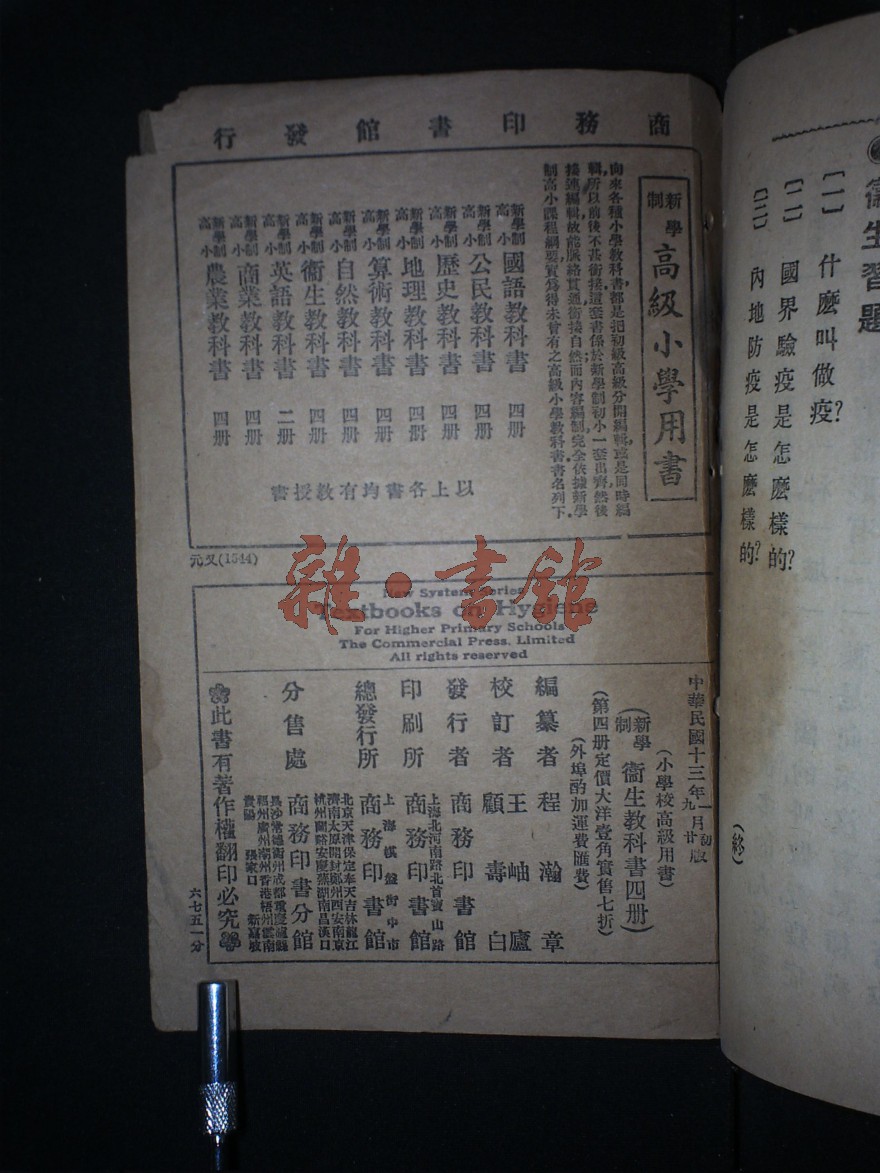 衞生習題
〔一〕什麽叫做疫?
〔二〕國界驗疫是怎麽樣的?
〔三〕內地防疫是怎麽樣的?
(終)
商務印書館發行
新學制
高級小學用書
向來各種小學教科書都是把初級高級分開編輯或是同時編
輯所以前後不甚銜接這套書係於新學制初小一套出齊然後
接連編輯故能脈絡貫通銜接自然而內容編制完全依據新學
制高小課程綱要實爲得未曾有之高級小學教科書書名列下
新學制高小國語教科書 四册
新學制高小公民教科書 四册
新學制高小歷史教科書 四册
新學制高小地理教科書 四册
新學制高小算術教科書 四册
新學制高小自然教科書 四册
新學制高小衞生教科書 四册
新學制高小英語教科書 二册
新學制高小商業教科書 四册
新學制高小農業教科書 四册
以上各書均有教授書
元又(1544)
雜·書館
New System Series
Textbooks on Hygiene
For Higher Primary Schools
The Commercial Press, Limited
All rights reserved
中華民國十三年
一月初版
(小學校高級用書)
(新學制衞生教科書四册)
(第四册定價大洋壹角實售七折)
(外埠酌加運費匯費)
編纂者 程瀚章
校訂者 王岫廬
顧壽白
發行者 商務印書館
印刷所 上海北河南路北首寶山路
商務印書館
總發行所 上海棋盤街中市
商務印書館
分售處 北京天津保定奉天吉林龍江
濟南太原開封鄭州西安南京
杭州蘭谿安慶蕪湖南昌漢口
商務印書分館
長沙常德衡州成都重慶瀘縣
福州廣州潮州香港梧州雲南
貴陽 張家口 新嘉坡
此書有著作權翻印必究
六七五一分